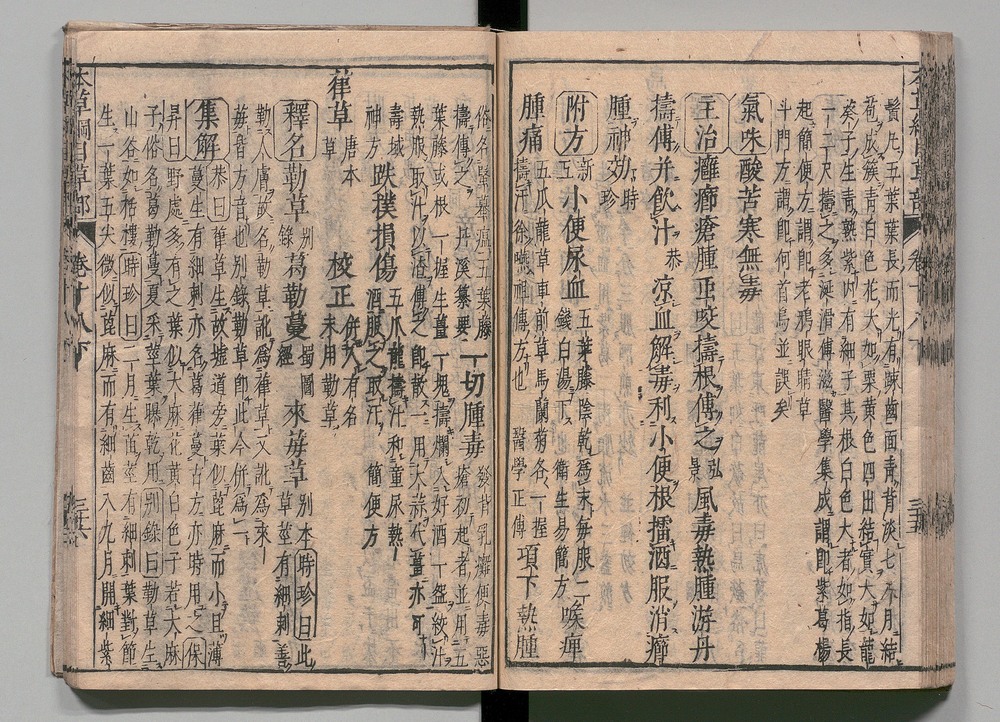 鬚凡五葉葉長而光有疎齒面青背淡七八月結
苞成簇青白色花大如粟黃色四出結實大如龍
葵子生青熟紫內有細子其根白色大者如指長
一二尺擣之多涎滑傅滋醫學集成謂即紫葛楊
起簡便方謂即老鴉眼睛草
斗門方謂即何首烏並誤矣
氣味酸苦寒無毒
主治癰癤瘡腫蟲咬擣根傅之弘景風毒熱腫游丹
擣傅并飲汁恭涼血解毒利小便根擂酒服消癤
腫神效時珍
附方新五小便尿血五葉藤陰乾為末每服二錢白湯下衛生易簡方喉痺
腫痛五瓜龍草車前草馬蘭菊各一握擣汁徐嚥祖傳方也醫學正傳項下熱腫
本草綱目草部 卷十八下
擣傅之丹溪纂要一切腫毒發背乳癰便毒惡瘡初起者並用五
葉藤或根一握生薑一塊擣爛入好酒一盞絞汁
熱服取汗以渣傅之即散一用大蒜代薑亦可
壽域神方跌撲損傷五爪龍擣汁和童尿熱酒服之取汗簡便方
葎草唐本草校正併入有名未用勒草
釋名勒草別錄葛勒蔓蜀圖經來莓草別本時珍曰此草莖有細刺善
勒人膚故名勒草訛為葎草又訛為來
莓皆方音也別錄勒草即此今併為一
集解恭曰葎草生故墟道旁葉似蓖麻而小且薄
蔓生有細刺亦名葛葎蔓古方亦時用之保
昇曰野處多有之葉似大麻花黃白色子若大麻
子俗名葛勒蔓夏采莖葉曝乾用別錄曰勒草生
山谷如栝樓時珍曰二月生苗莖有細刺葉對節
生一葉五尖微似蓖麻而有細齒八九月開細紫
本草綱目草部 卷十八下